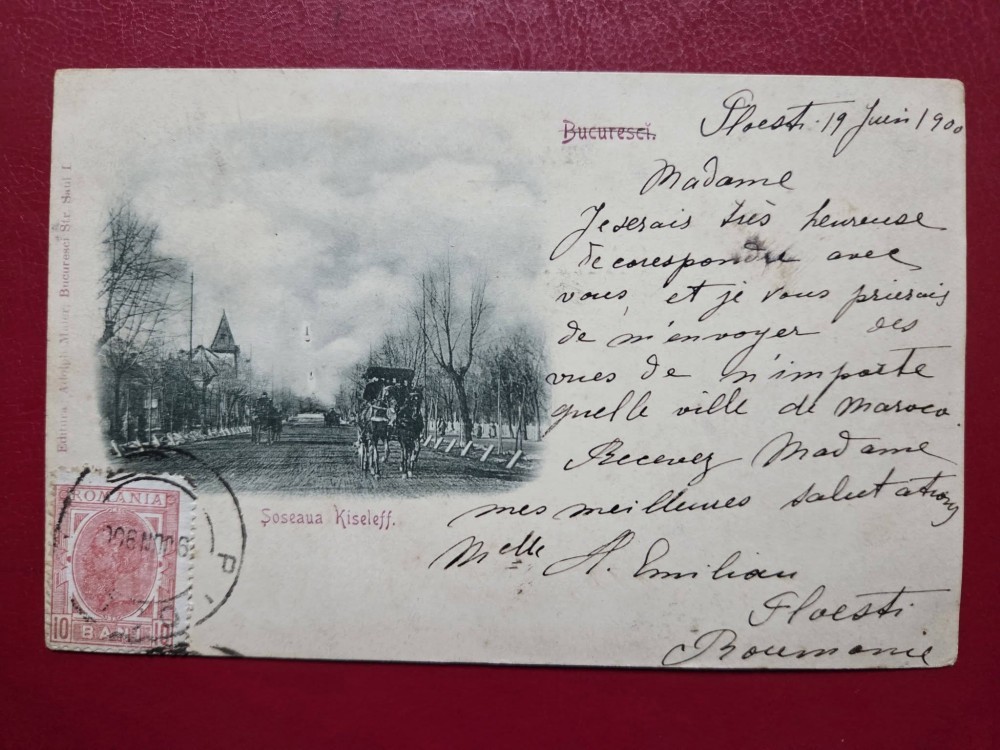 Bucuresci.
Ploesti. 19 Juin 1900
Madame
Je serais très heureuse
de corespondre avec
vous, et je vous prierais
de m'envoyer des
vues de n'importe
quelle ville de Maroco
Recevez Madame
mes meilleures salutations
Melle A. Emilian
Ploesti
Roumanie
Șoseaua Kiseleff.
Editura Adolph Maier, Bucuresci Str. Saul 1
ROMANIA
10 BANI 10